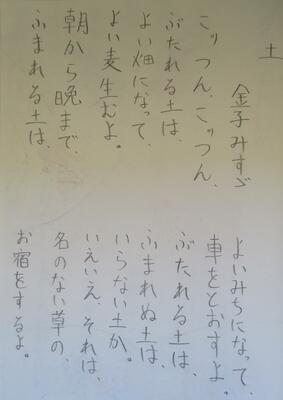 土
金子みすゞ
こッつん、こッつん、
ぶたれる土は、
よい畑になって、
よい麦生むよ。
朝から晩まで、
ふまれる土は、
よいみちになって、
車をとおすよ。
ぶたれる土は、
ふまれぬ土は、
いらない土か。
いえいえ、それは、
名のない草の、
お宿をするよ。